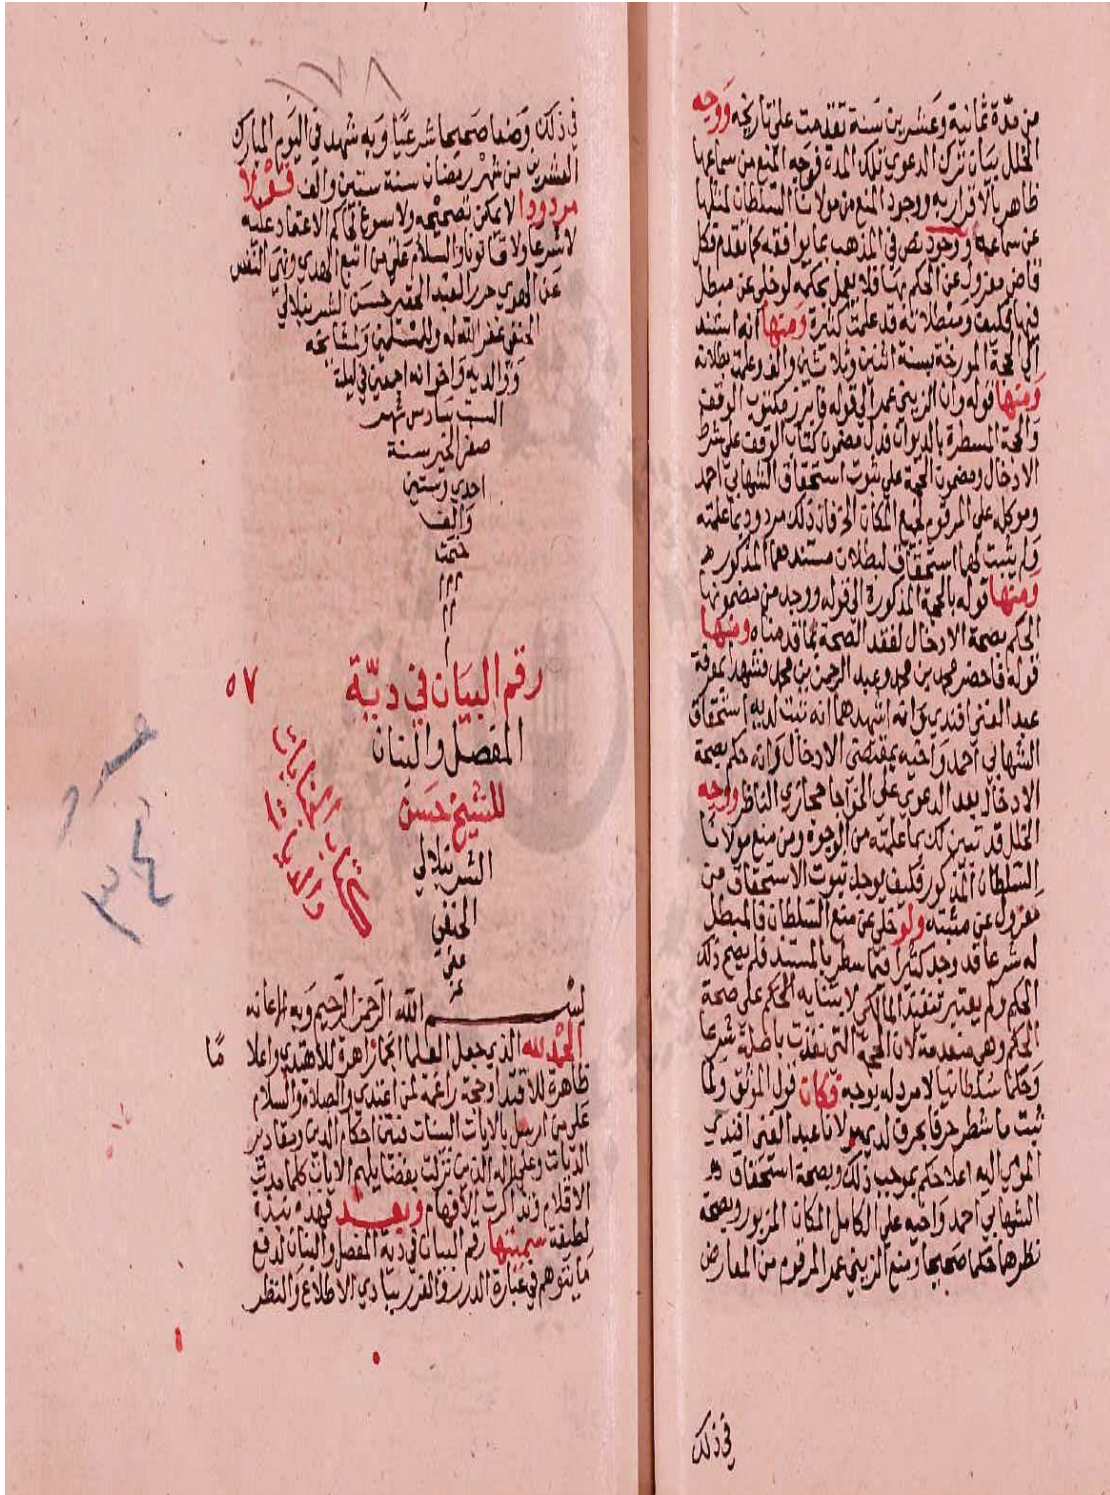 من مدة ثمانية وعشرين سنة تقدمت على تاريخه ووجه
الخلل بيان ترك الدعوي تلك المدة فوجه المنع من سماعها
ظاهر بالاقرار به ووجود المنع من مولانا السلطان لمثلها
عن سماعه ووجود نص في المذهب بما يوافقه كما تقدم فكل
قاض معزول عن الحكم بها فلا يعمل بحكمه لو خلي عن مبطل
فيها فكيف ومبطلاته قد علمت كثيرة ومنها انه استند
الي الحجة المورخة بسنة اثنين وثلاثين والف وعلمت بطلانه
ومنها قوله وان الزيني عمر الي قوله فابرز مكتوب الوقف
والحجة المسطرة بالديوان فدل مضمون كتاب الوقف على شرط
الادخال ومضمون الحجة على ثبوت استحقاق الشهابي احمد
وموكله على المرقوم لجميع المكان الخ فان ذلك مردود بما علمته
ولم يثبت لهما استحقاق لبطلان مستندهما المذكور
ومنها قوله بالحجة المذكورة الي قوله ووجد من مضمونها
الحكم بصحة الادخال لفقد الصحة بما قدمناه ومنها
قوله فاحضر محمد بن محمد وعبد الرحمن بن محمد فشهدا بمعرفة
عبد الغني افندي وانه اشهدهما انه ثبت لديه استحقاق
الشهابي احمد واخيه بمقتضي الادخال وانه حكم بصحة
الادخال بعد الدعوي على الخواجا حجازي الناظر ووجه
الخلل قد تبين لك بما علمته من الوجوه ومن منع مولانا
السلطان المذكور فكيف يوجد ثبوت الاستحقاق من
معزول عن مثبته ولو خلي عن منع السلطان فالمبطل
له شرعا قد وجد كثيرا فيما سطر بالمستند فلم يصح ذلك
الحكم ولم يعتبر تنفيذ المالكي لابتنايه الحكم على صحة
الحكم وهي منعدمة لان الحجة التي نفذت باطلة شرعا
وحكما سلطانيا لا مرد له بوجه فكان قول الموثق ولما
ثبت ما شطر حرفا بحرف لدي مولانا عبد الغني افندي
المومي اليه اعلا حكم بموجب ذلك وبصحة استحقاق
الشهابي احمد واخيه على الكامل المكان المزبور وبصحة
نظرها حكما صحيحا ومنع الزيني عمر المرقوم من المعارض
في ذلك
١٧٨
في ذلك وضعا صحيحا شرعيا وبه شهد في اليوم المبارك
العشرين من شهر رمضان سنة ستين والف فقولا
مردودا لا يمكن تصحيحه ولا سوغ لحاكم الاعتماد عليه
لا شرعا ولا قانونا والسلام على من اتبع الهدي ونهى النفس
عن الهوي حرر العبد الحقير حسن الشرنبلالي
الحنفي غفر الله له وللمسلمين ولمشايخه
ووالديه واخوانه اجمعين في ليلة
السبت سادس شهر
صفر الخير سنة
احدي وستين
والف
ختمت
م م م
م م
رقم البيان في دية ٥٧
المفصل والبنان
للشيخ حسن
الشرنبلالي
الحنفي
عفي
عنه
كتاب الجنايات
والديات
٣٤
بسم الله الرحمن الرحيم وبه الاعانه
الحمد لله الذي جعل العلما انجما زاهرة للاهتدي واعلاما
ظاهرة للاقتدا وحجة راغمة لمن اعتدي والصلاة والسلام
على من ارسل بالايات البينات فبين احكام الدين ومقادير
الديات وعلى اله الذين نزلت بفضايلهم الايات كلما مدت
الاقلام وتذاكرت الافهام وبعد فهذه نبذة
لطيفة سميتها رقم البيان في دية المفصل والبنان لدفع
ما يتوهم في عبارة الدرر والغرر ببادي الاطلاع والنظر